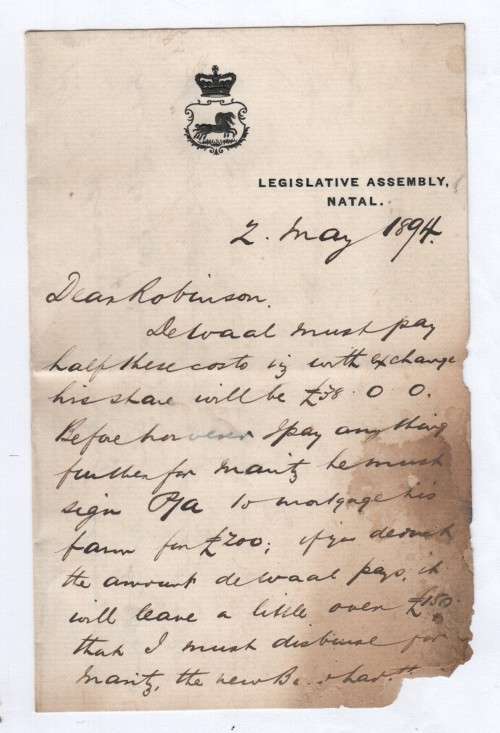 LEGISLATIVE ASSEMBLY,
NATAL.
2. May 1894.
Dear Robinson.
De Waal must pay
half these costs viz with exchange
his share will be £38. 0 0.
Before however I pay anything
further for Maritz he must
sign P/A to mortgage his
farm for £200; if you deduct
the amount de Waal pays, it
will leave a little over £150.
that I must disburse for
Maritz, the new